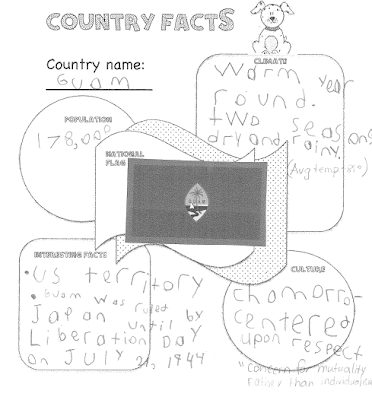 COUNTRY FACTS
Country name:
Guam
POPULATION
178,000
CLIMATE
Warm year
round.
two seasons
dry and rainy.
(Aug temp=81°)
NATIONAL
FLAG
GUAM
INTERESTING FACTS
• US territory
• Guam was ruled
Japan until by
Liberation Day
on July 21, 1944
CULTURE
chamorro-
centered
upon respect
"concern for mutuality
rather than individualism